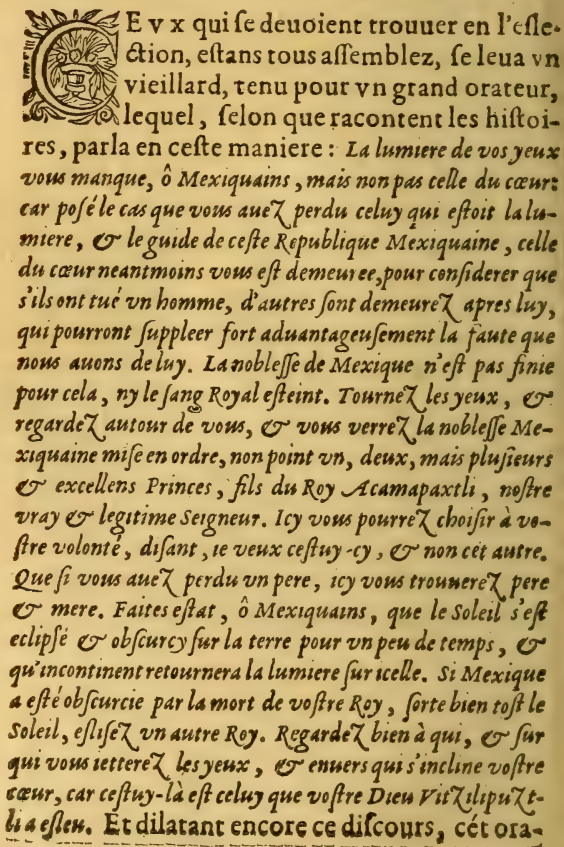 CEvx qui ſe deuoient trouuer en l'eſle-
ction, eſtans tous aſſemblez, ſe leua vn
vieillard, tenu pour vn grand orateur,
lequel, ſelon que racontent les hiſtoi-
res, parla en ceſte maniere: La lumiere de vos yeux
vous manque, ô Mexiquains, mais non pas celle du cœur:
car poſé le cas que vous auez perdu celuy qui eſtoit la lu-
miere, & le guide de ceſte Republique Mexiquaine, celle
du cœur neantmoins vous eſt demeuree, pour conſiderer que
s'ils ont tué vn homme, d'autres ſont demeurez apres luy,
qui pourront ſuppleer fort aduantageuſement la faute que
nous auons de luy. La nobleſſe de Mexique n'eſt pas finie
pour cela, ny le ſang Royal eſteint. Tournez les yeux, &
regardez autour de vous, & vous verrez la nobleſſe Me-
xiquaine miſe en ordre, non point vn, deux, mais pluſieurs
& excellens Princes, fils du Roy Acamapaxtli, noſtre
vray & legitime Seigneur. Icy vous pourrez choiſir à vo-
ſtre volonté, diſant, ie veux ceſtuy-cy, & non cét autre.
Que ſi vous auez perdu vn pere, icy vous trouuerez pere
& mere. Faites eſtat, ô Mexiquains, que le Soleil s'eſt
eclipſé & obſcurcy ſur la terre pour vn peu de temps, &
qu'incontinent retournera la lumiere ſur icelle. Si Mexique
a eſté obſcurcie par la mort de voſtre Roy, ſorte bien toſt le
Soleil, eſliſez vn autre Roy. Regardez bien à qui, & ſur
qui vous ietterez les yeux, & enuers qui s'incline voſtre
cœur, car ceſtuy-là eſt celuy que voſtre Dieu Vitzilipuzt-
li a eſleu. Et dilatant encore ce diſcours, cét ora-